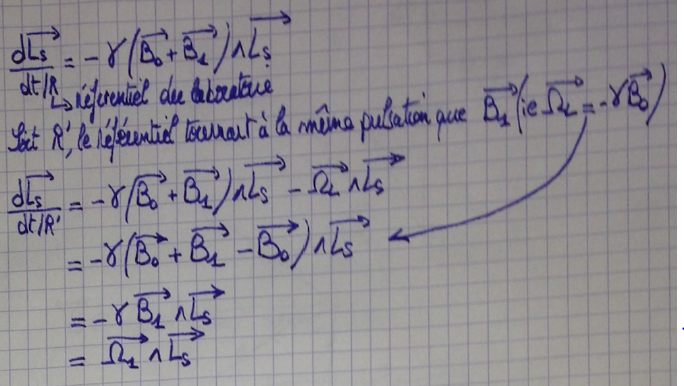 dLs/dt/R = -γ(B₀ + B₁) ∧ Ls
↳ référentiel du laboratoire
Soit R', le référentiel tournant à la même pulsation que B₁ (ie Ω_L = -γB₀)
dLs/dt/R' = -γ(B₀ + B₁) ∧ Ls - Ω_L ∧ Ls
= -γ(B₀ + B₁ - B₀) ∧ Ls
= -γ B₁ ∧ Ls
= Ω₁ ∧ Ls